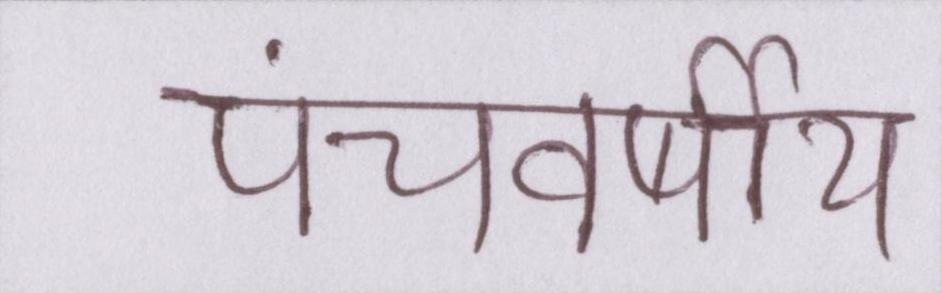 पंचवर्षीय